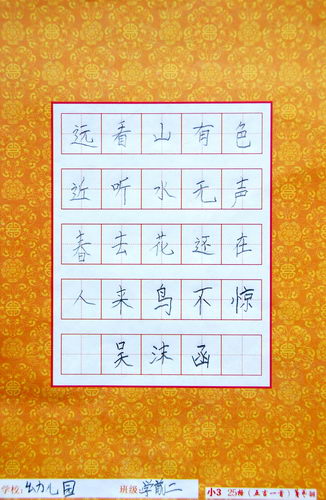 远看山有色
近听水无声
春去花还在
人来鸟不惊
吴沫函
学校:幼儿园 班级:学前二 小3 25格(五言一首)